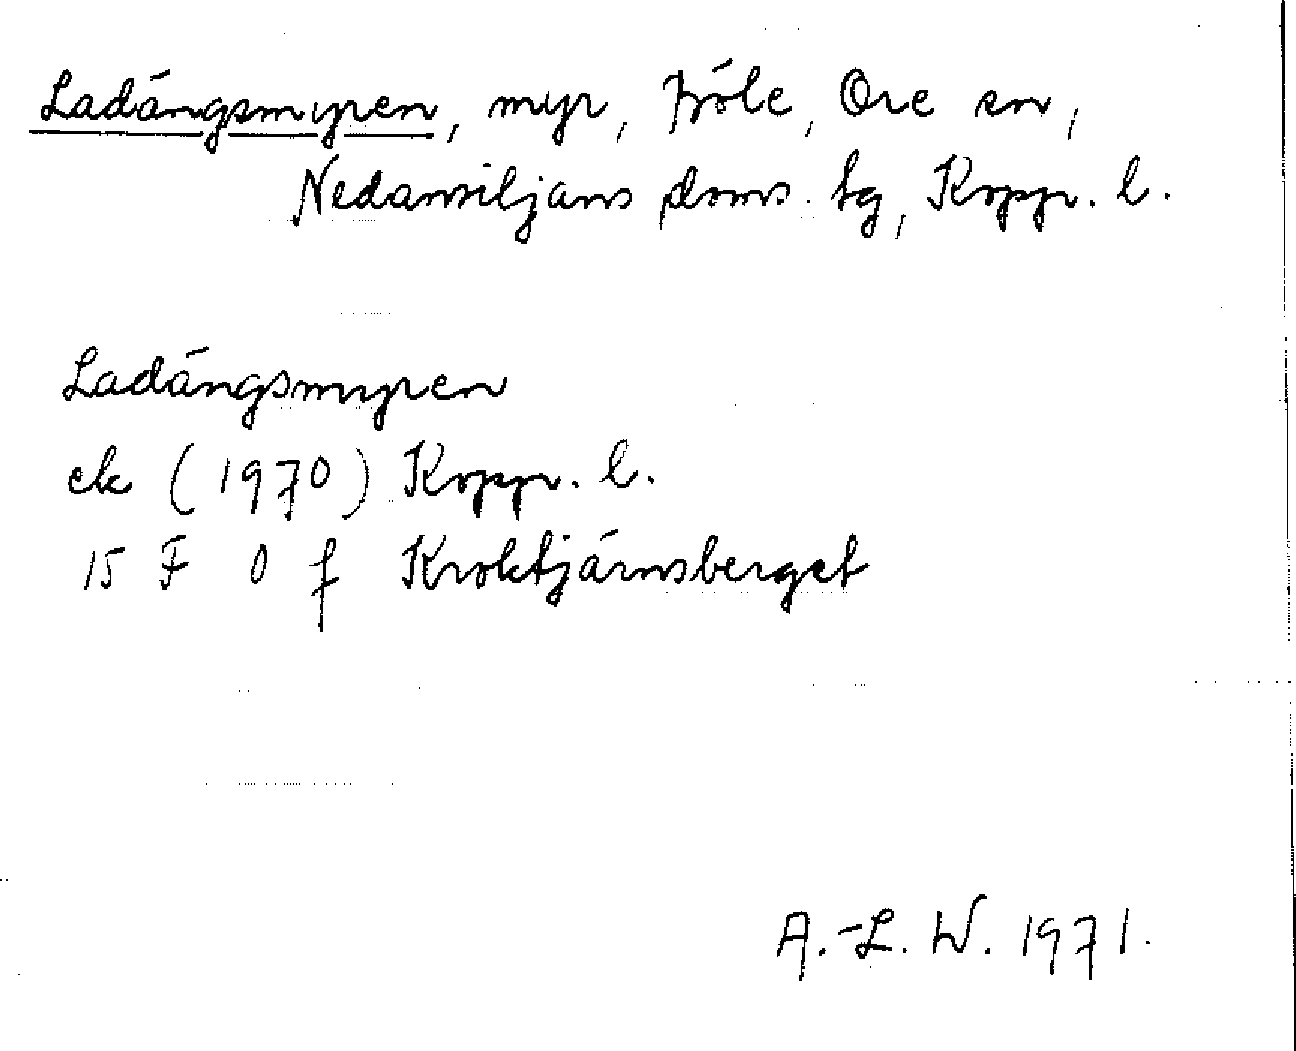 Ladängsmyren, myr, Fröle, Ore sn,
Nedansiljans doms. tg, Koppr. l.
Ladängsmyren
ek (1970) Koppr. l.
15 F 0 f Kroktjärnsberget
A.-L. W. 1971.